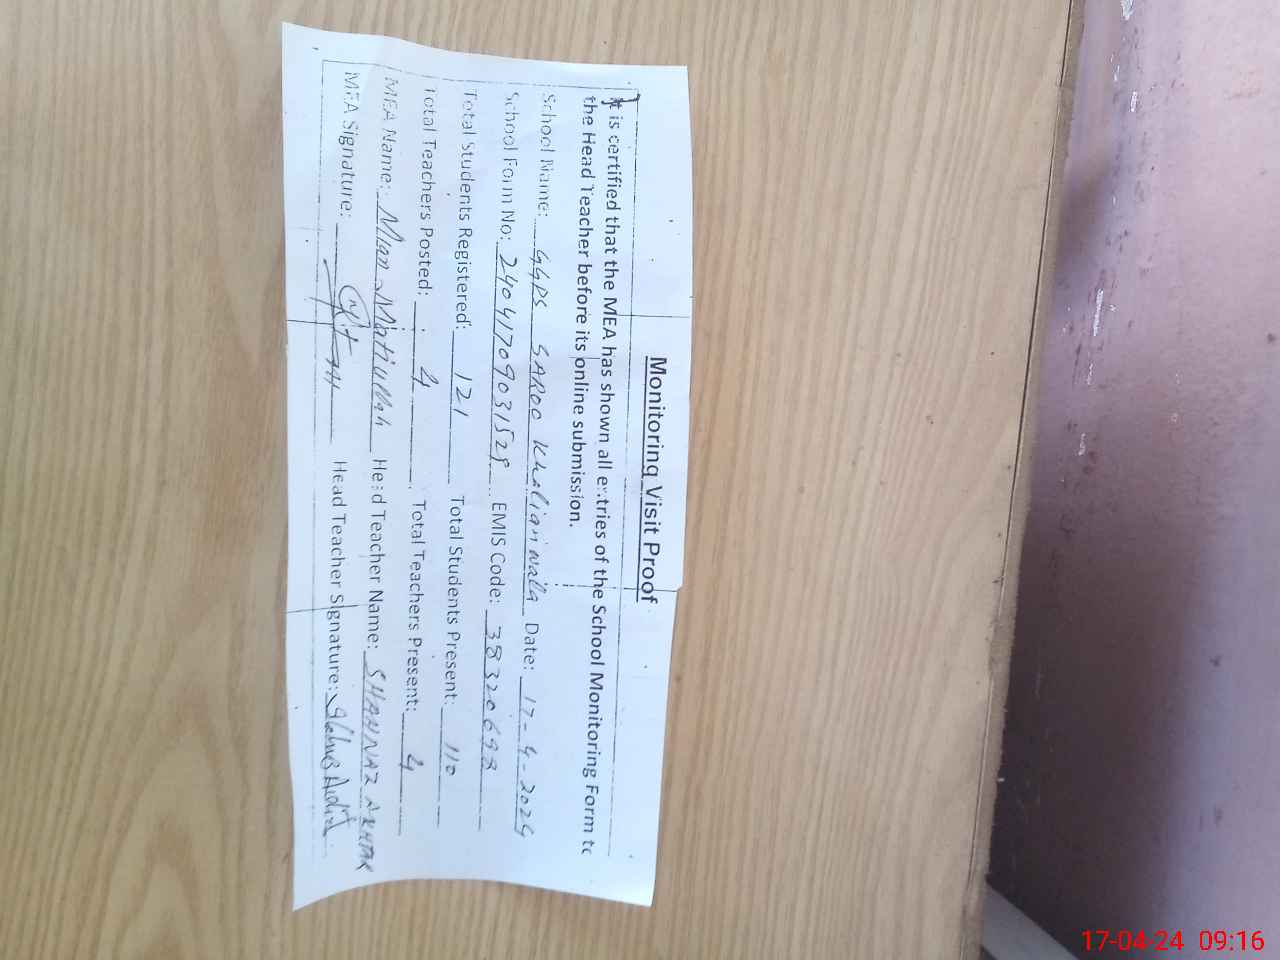 Monitoring Visit Proof
It is certified that the MEA has shown all entries of the School Monitoring Form to
the Head Teacher before its online submission.
School Name: GGPS SAROO Khalianwalla Date: 17-4-2024
School Form No: 24041709031528 EMIS Code: 38320698
Total Students Registered: 121 Total Students Present: 110
Total Teachers Posted: 4 Total Teachers Present: 4
MEA Name: Mian Matiullah Head Teacher Name: SHAHNAZ AKHTAR
MEA Signature: Head Teacher Signature:
17-04-24 09:16